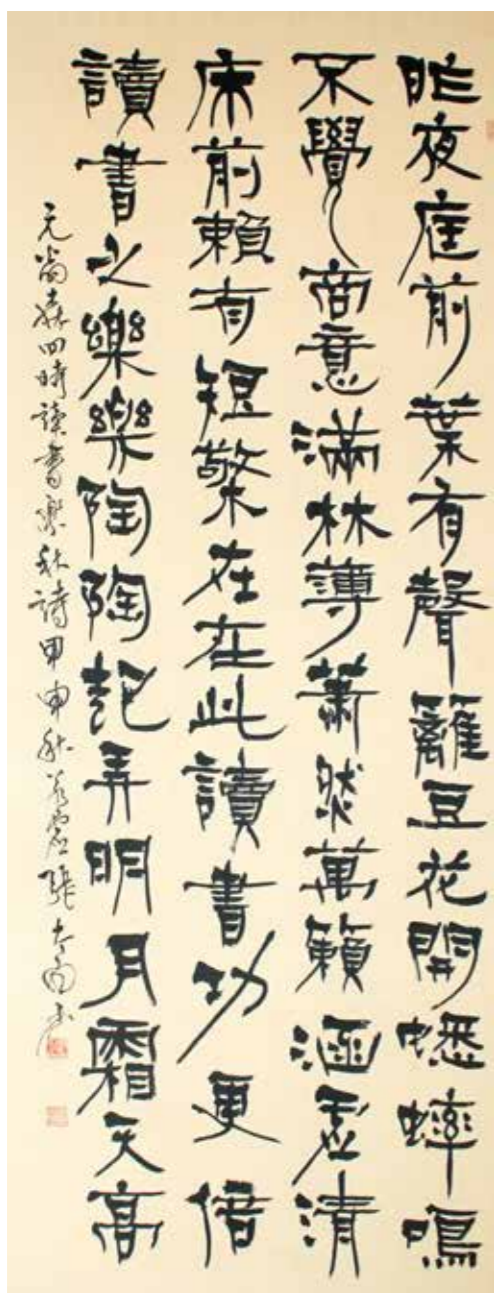 昨夜庭前葉有聲籬豆花開蟋蟀鳴
不覺商意滿林薄蕭然萬籟涵虛清
床前賴有短檠在在此讀書功更倍
讀書之樂樂陶陶起弄明月霜天高
元翁森四時讀書樂秋詩甲申秋張